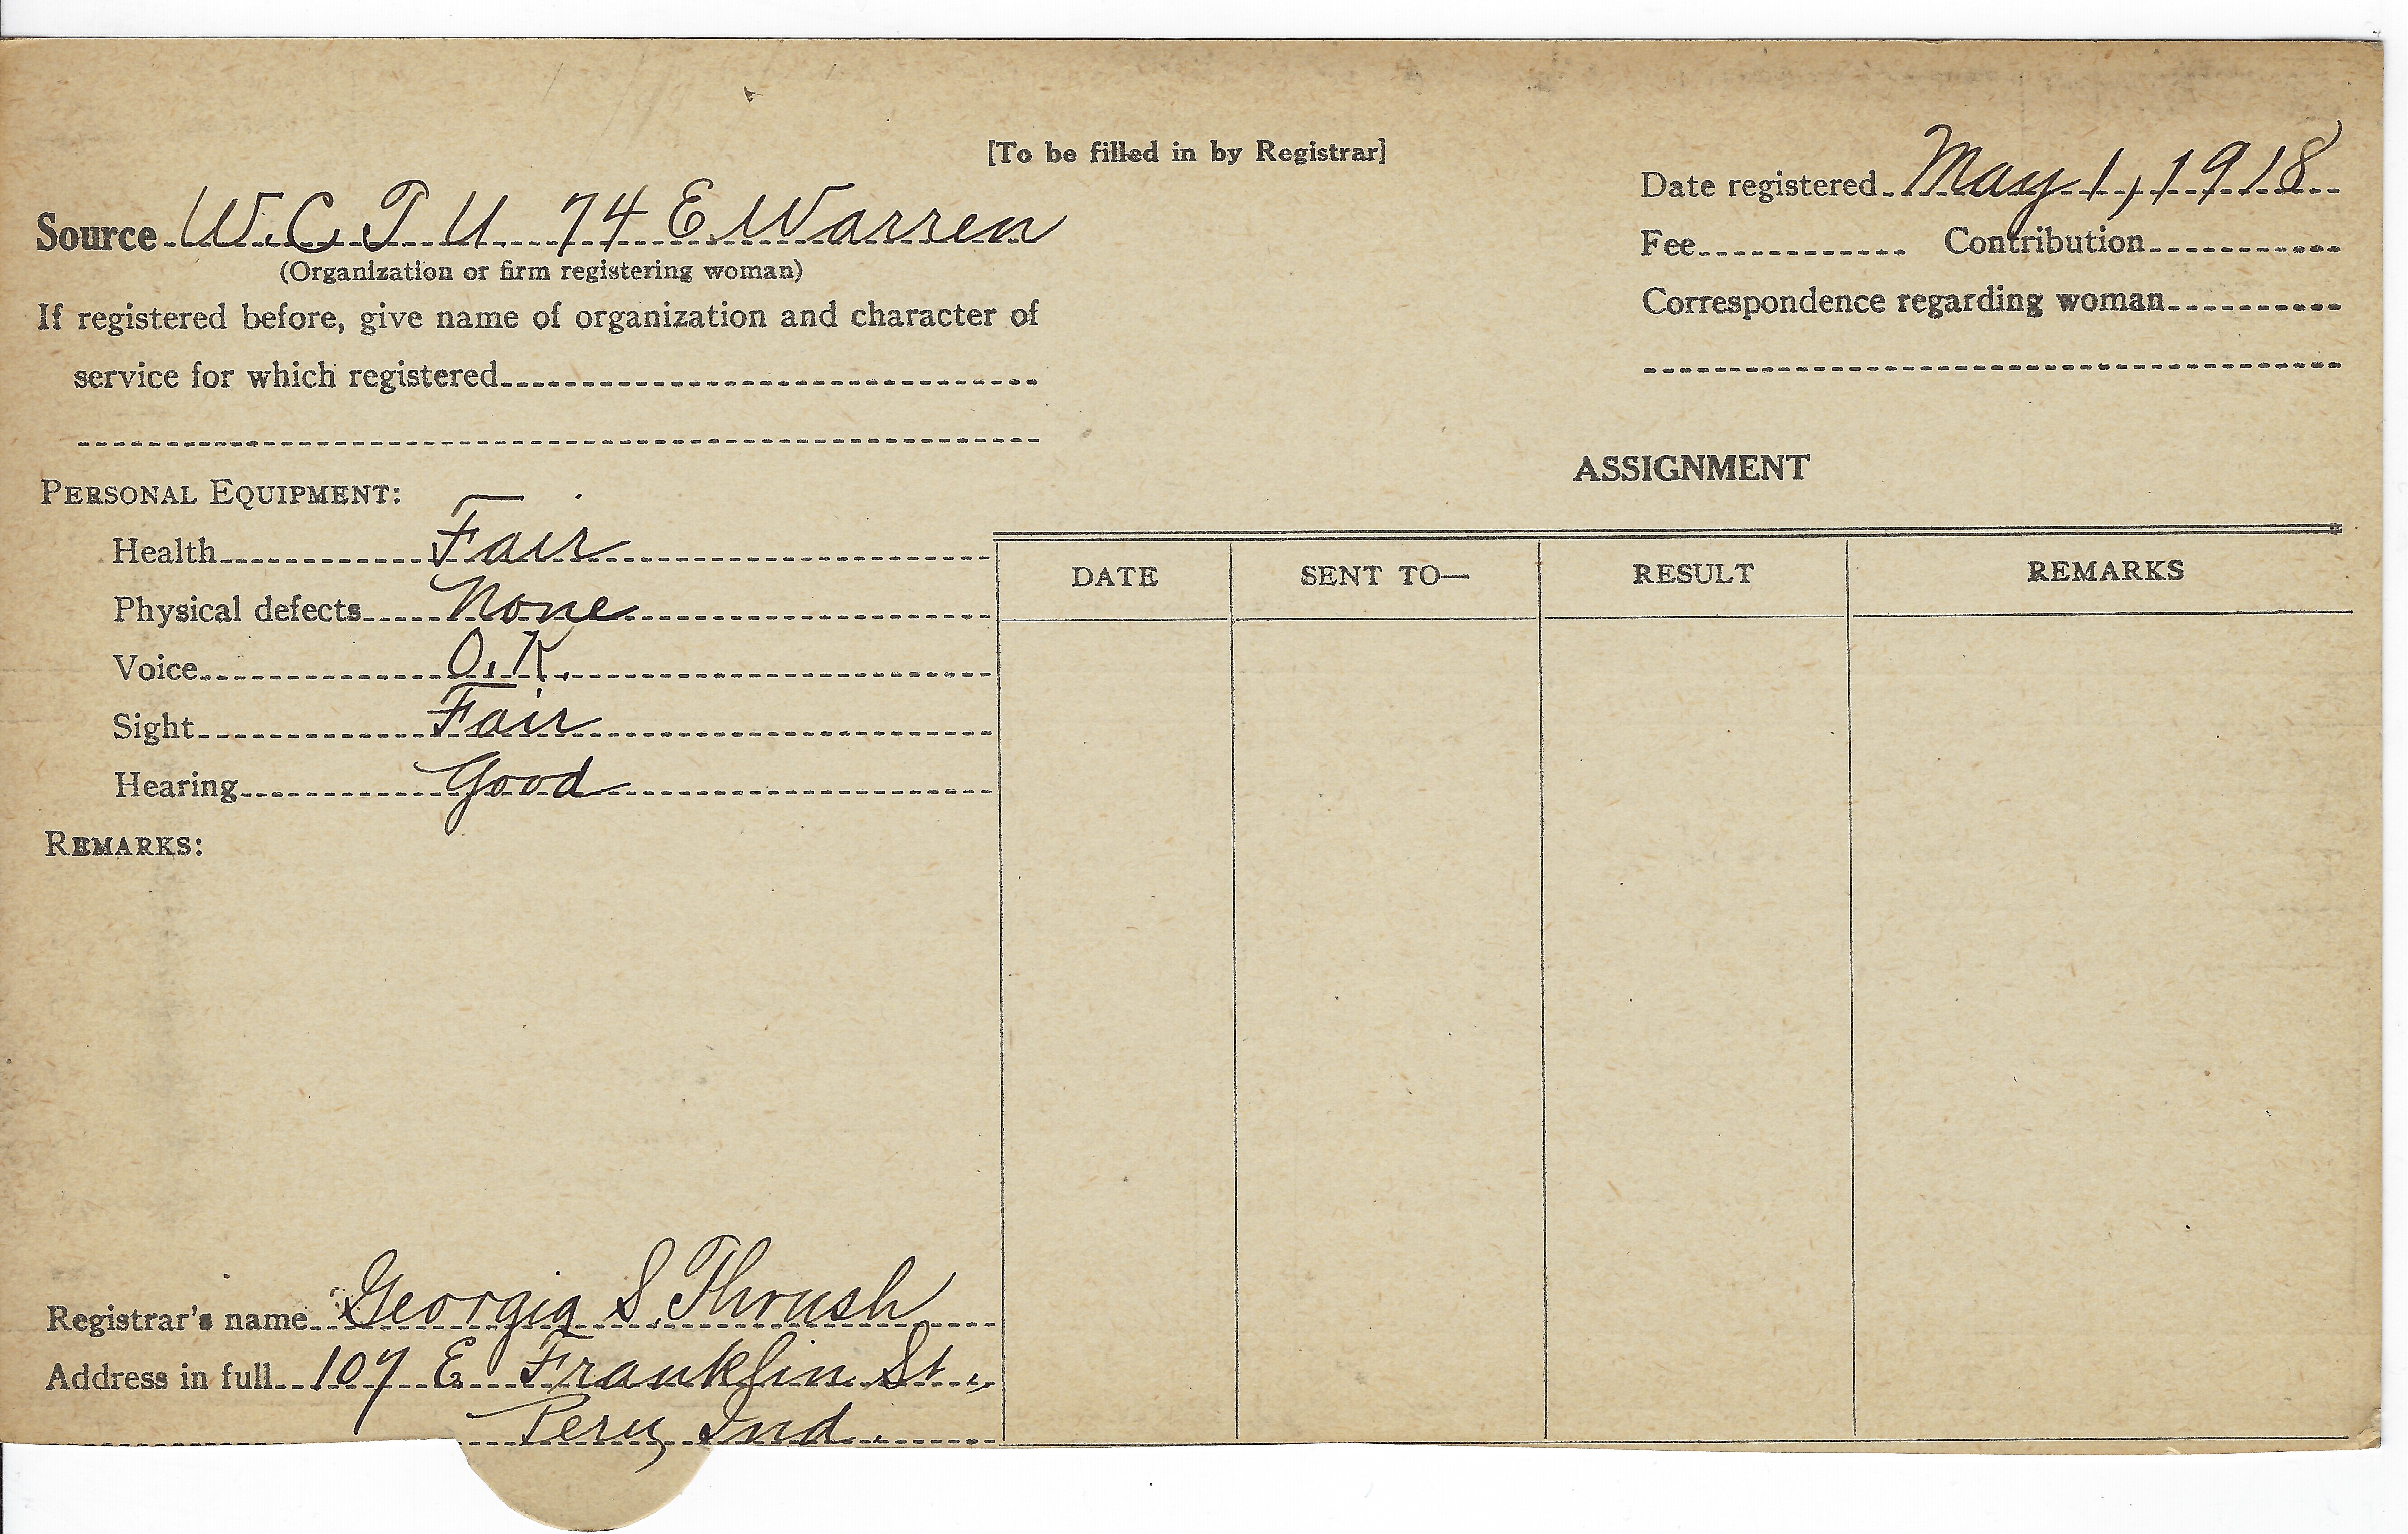 [To be filled in by Registrar]
Source W.C.T.U. 74 E. Warren
(Organization or firm registering woman)
If registered before, give name of organization and character of
service for which registered
Date registered May 1, 1918
Fee Contribution
Correspondence regarding woman
PERSONAL EQUIPMENT:
Health Fair
Physical defects None
Voice O.K.
Sight Fair
Hearing Good
REMARKS:
ASSIGNMENT
DATE SENT TO— RESULT REMARKS
Registrar's name Georgia S. Thrush
Address in full 107 E. Franklin St.,
Peru, Ind.